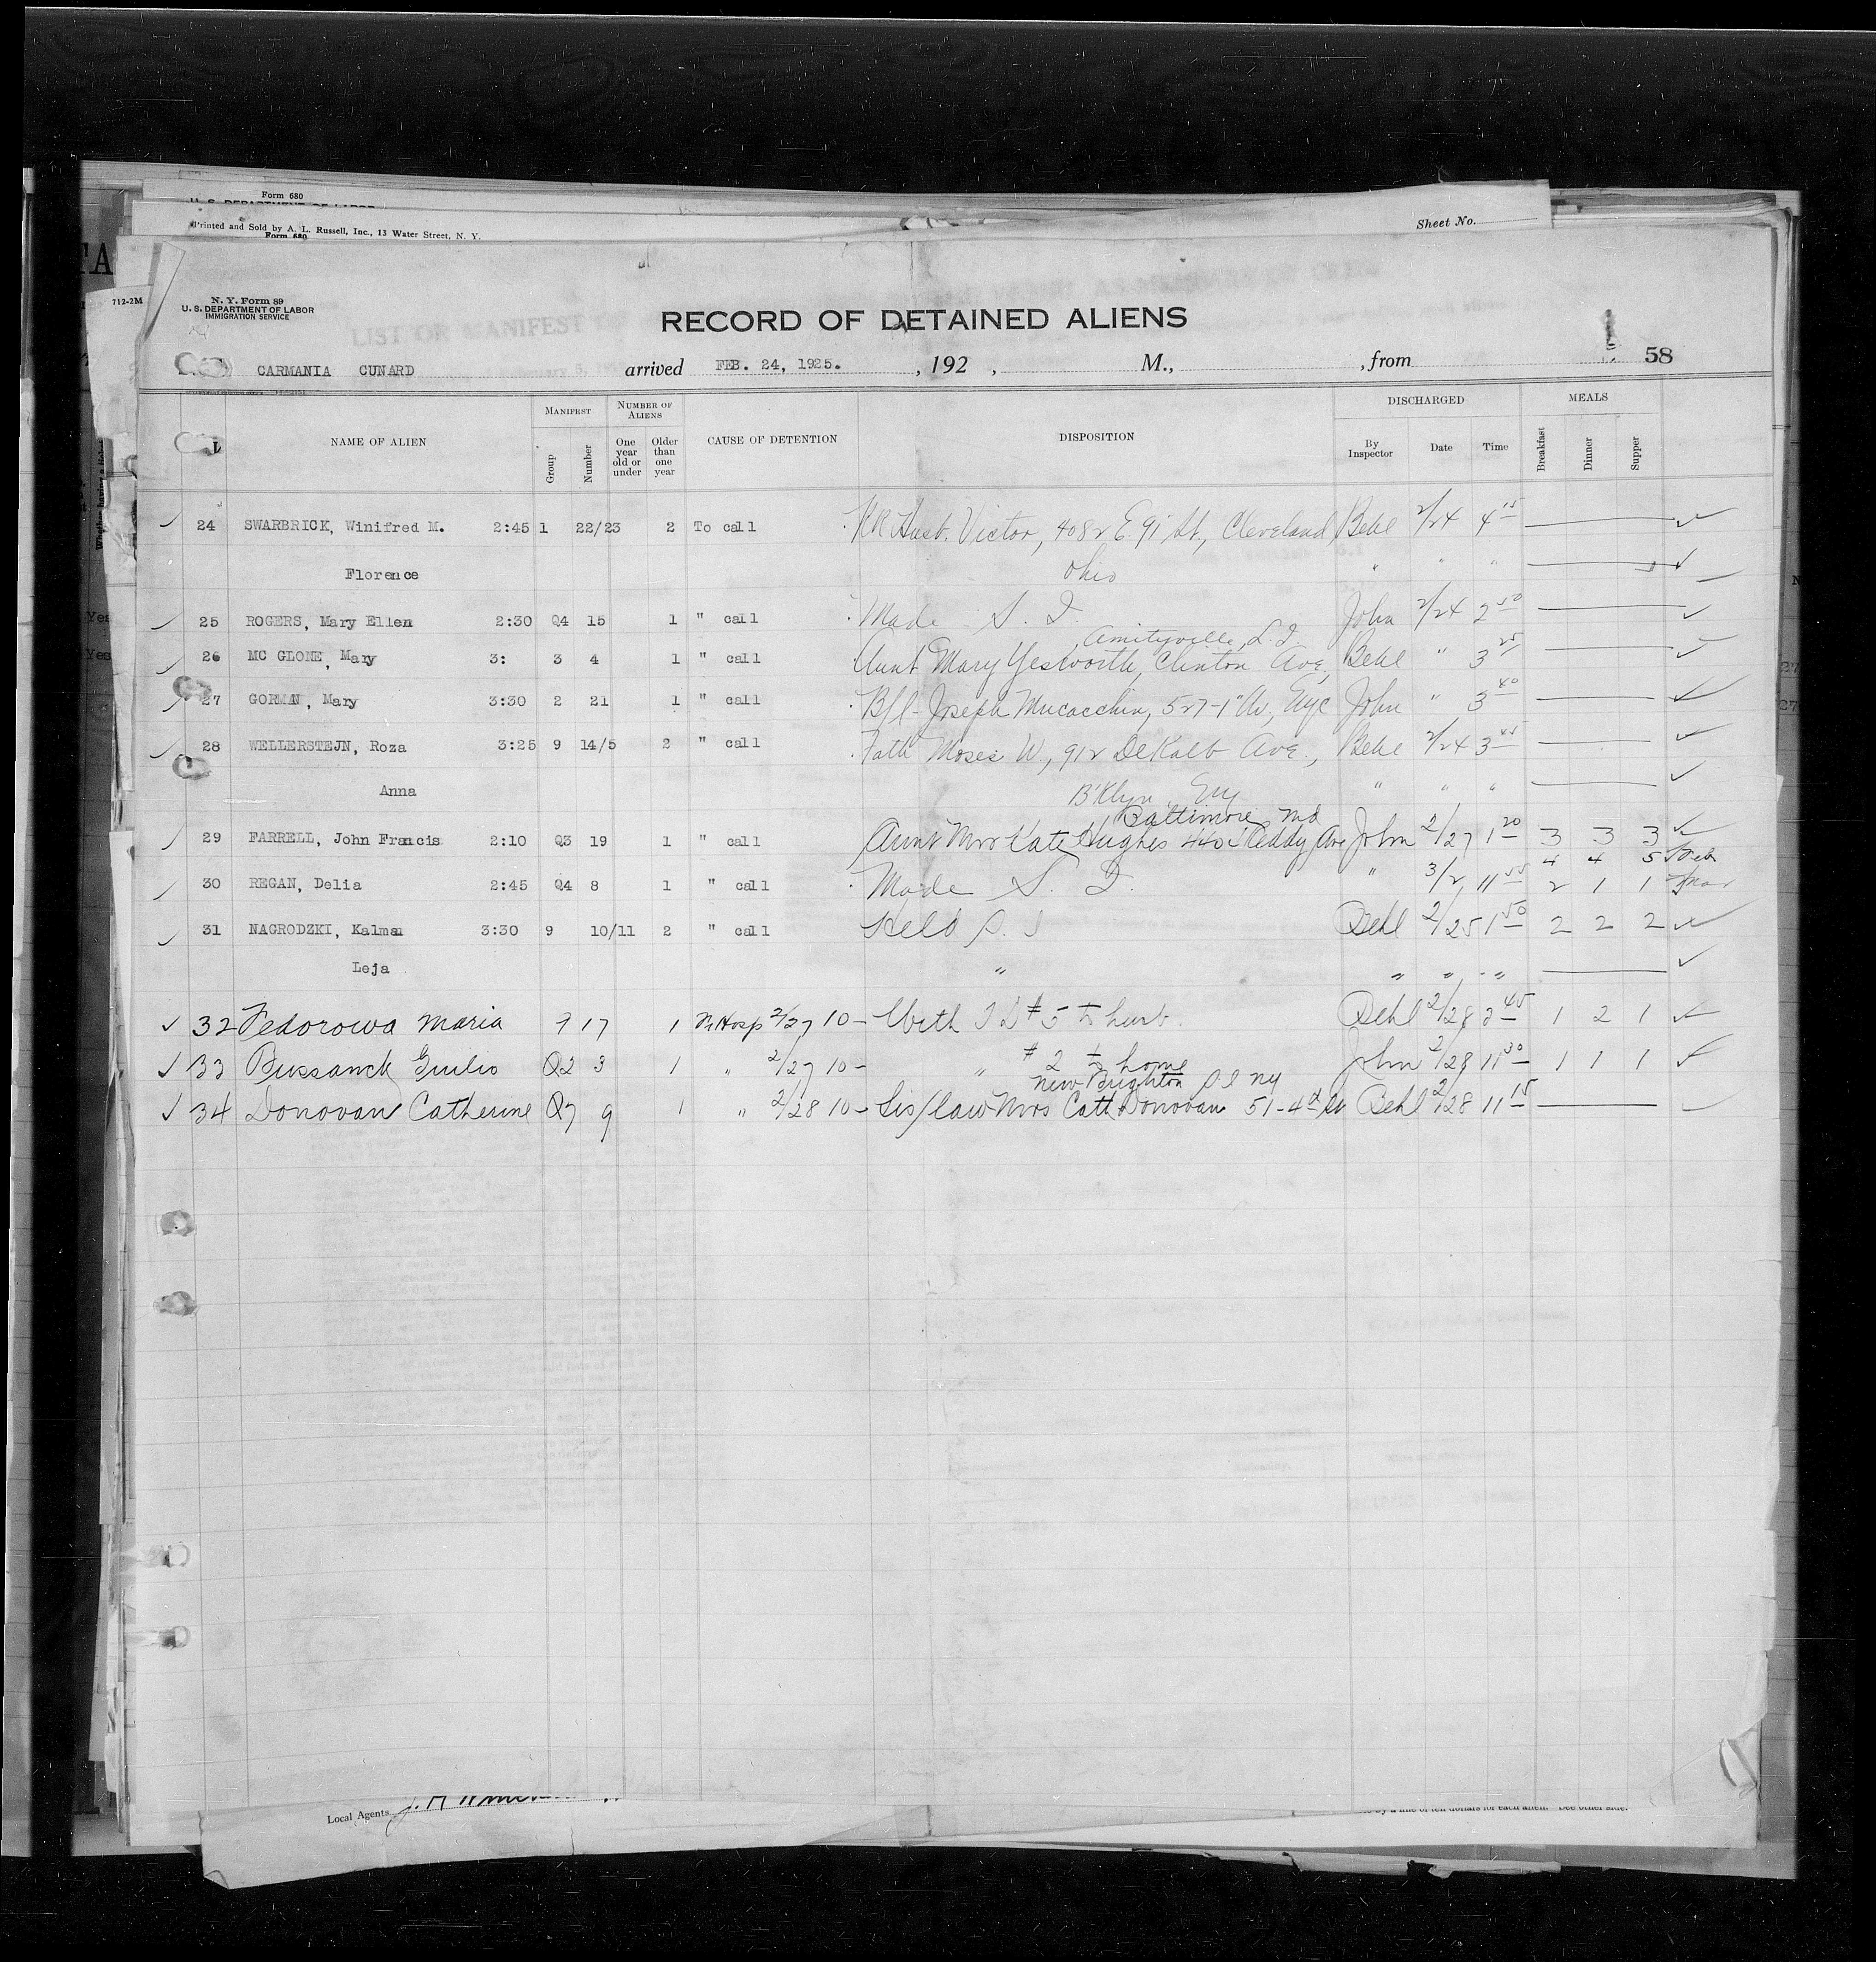 Form 680
Printed and Sold by A. L. Russell, Inc., 13 Water Street, N. Y.
Form 680
Sheet No.
712-2M
N. Y. Form 89
U. S. DEPARTMENT OF LABOR
IMMIGRATION SERVICE
RECORD OF DETAINED ALIENS
CARMANIA CUNARD arrived FEB. 24, 1925. , 192 , M., , from 58
NAME OF ALIEN MANIFEST NUMBER OF ALIENS CAUSE OF DETENTION DISPOSITION DISCHARGED MEALS
Group Number One year old or under Older than one year By Inspector Date Time Breakfast Dinner Supper
24 SWARBRICK, Winifred M. 2:45 1 22/23 2 To call RR Husb. Victor, 4082 E. 91 St., Cleveland Behl 2/24 4 15
Florence Ohio " " "
25 ROGERS, Mary Ellen 2:30 Q4 15 1 " call Made S. I. John 2/24 2 50
Amityville, L.I.
26 MC GLONE, Mary 3: 3 4 1 " call Aunt Mary Yesworth, Clinton Ave, Behl " 3 25
27 GORMAN, Mary 3:30 2 21 1 " call B/l - Joseph Mucacchia, 527-1" Av, Nyc John " 3 40
28 WELLERSTEJN, Roza 3:25 9 14/5 2 " call Fath Moses W., 912 DeKalb Ave., Behl 2/24 3 45
Anna B'klyn, Ny " " "
Baltimore, Md
29 FARRELL, John Francis 2:10 Q3 19 1 " call Aunt Mrs Kate Hughes 440 Ave John 2/27 1 20 3 3 3
4 4 5 Feb
30 REGAN, Delia 2:45 Q4 8 1 " call Made S. I. " 3/2 11 55 2 1 1 Mar
31 NAGRODZKI, Kalman 3:30 9 10/11 2 " call Held S. I Behl 2/25 1 50 2 2 2
Leja " " " "
32 Fedorowa Maria 9 17 1 Hosp 2/27 10 - With I D # 5 to husb. Behl 2/28 3 45 1 2 1
33 Bussanck Giulio Q2 3 1 " 2/27 10 - " # 2 to home John 2/28 11 30 1 1 1
New Brighton S I Ny
34 Donovan Catherine Q7 9 1 " 2/28 10 - Sis/law Mrs Cath Donovan 51-4th Behl 2/28 11 15
Local Agents